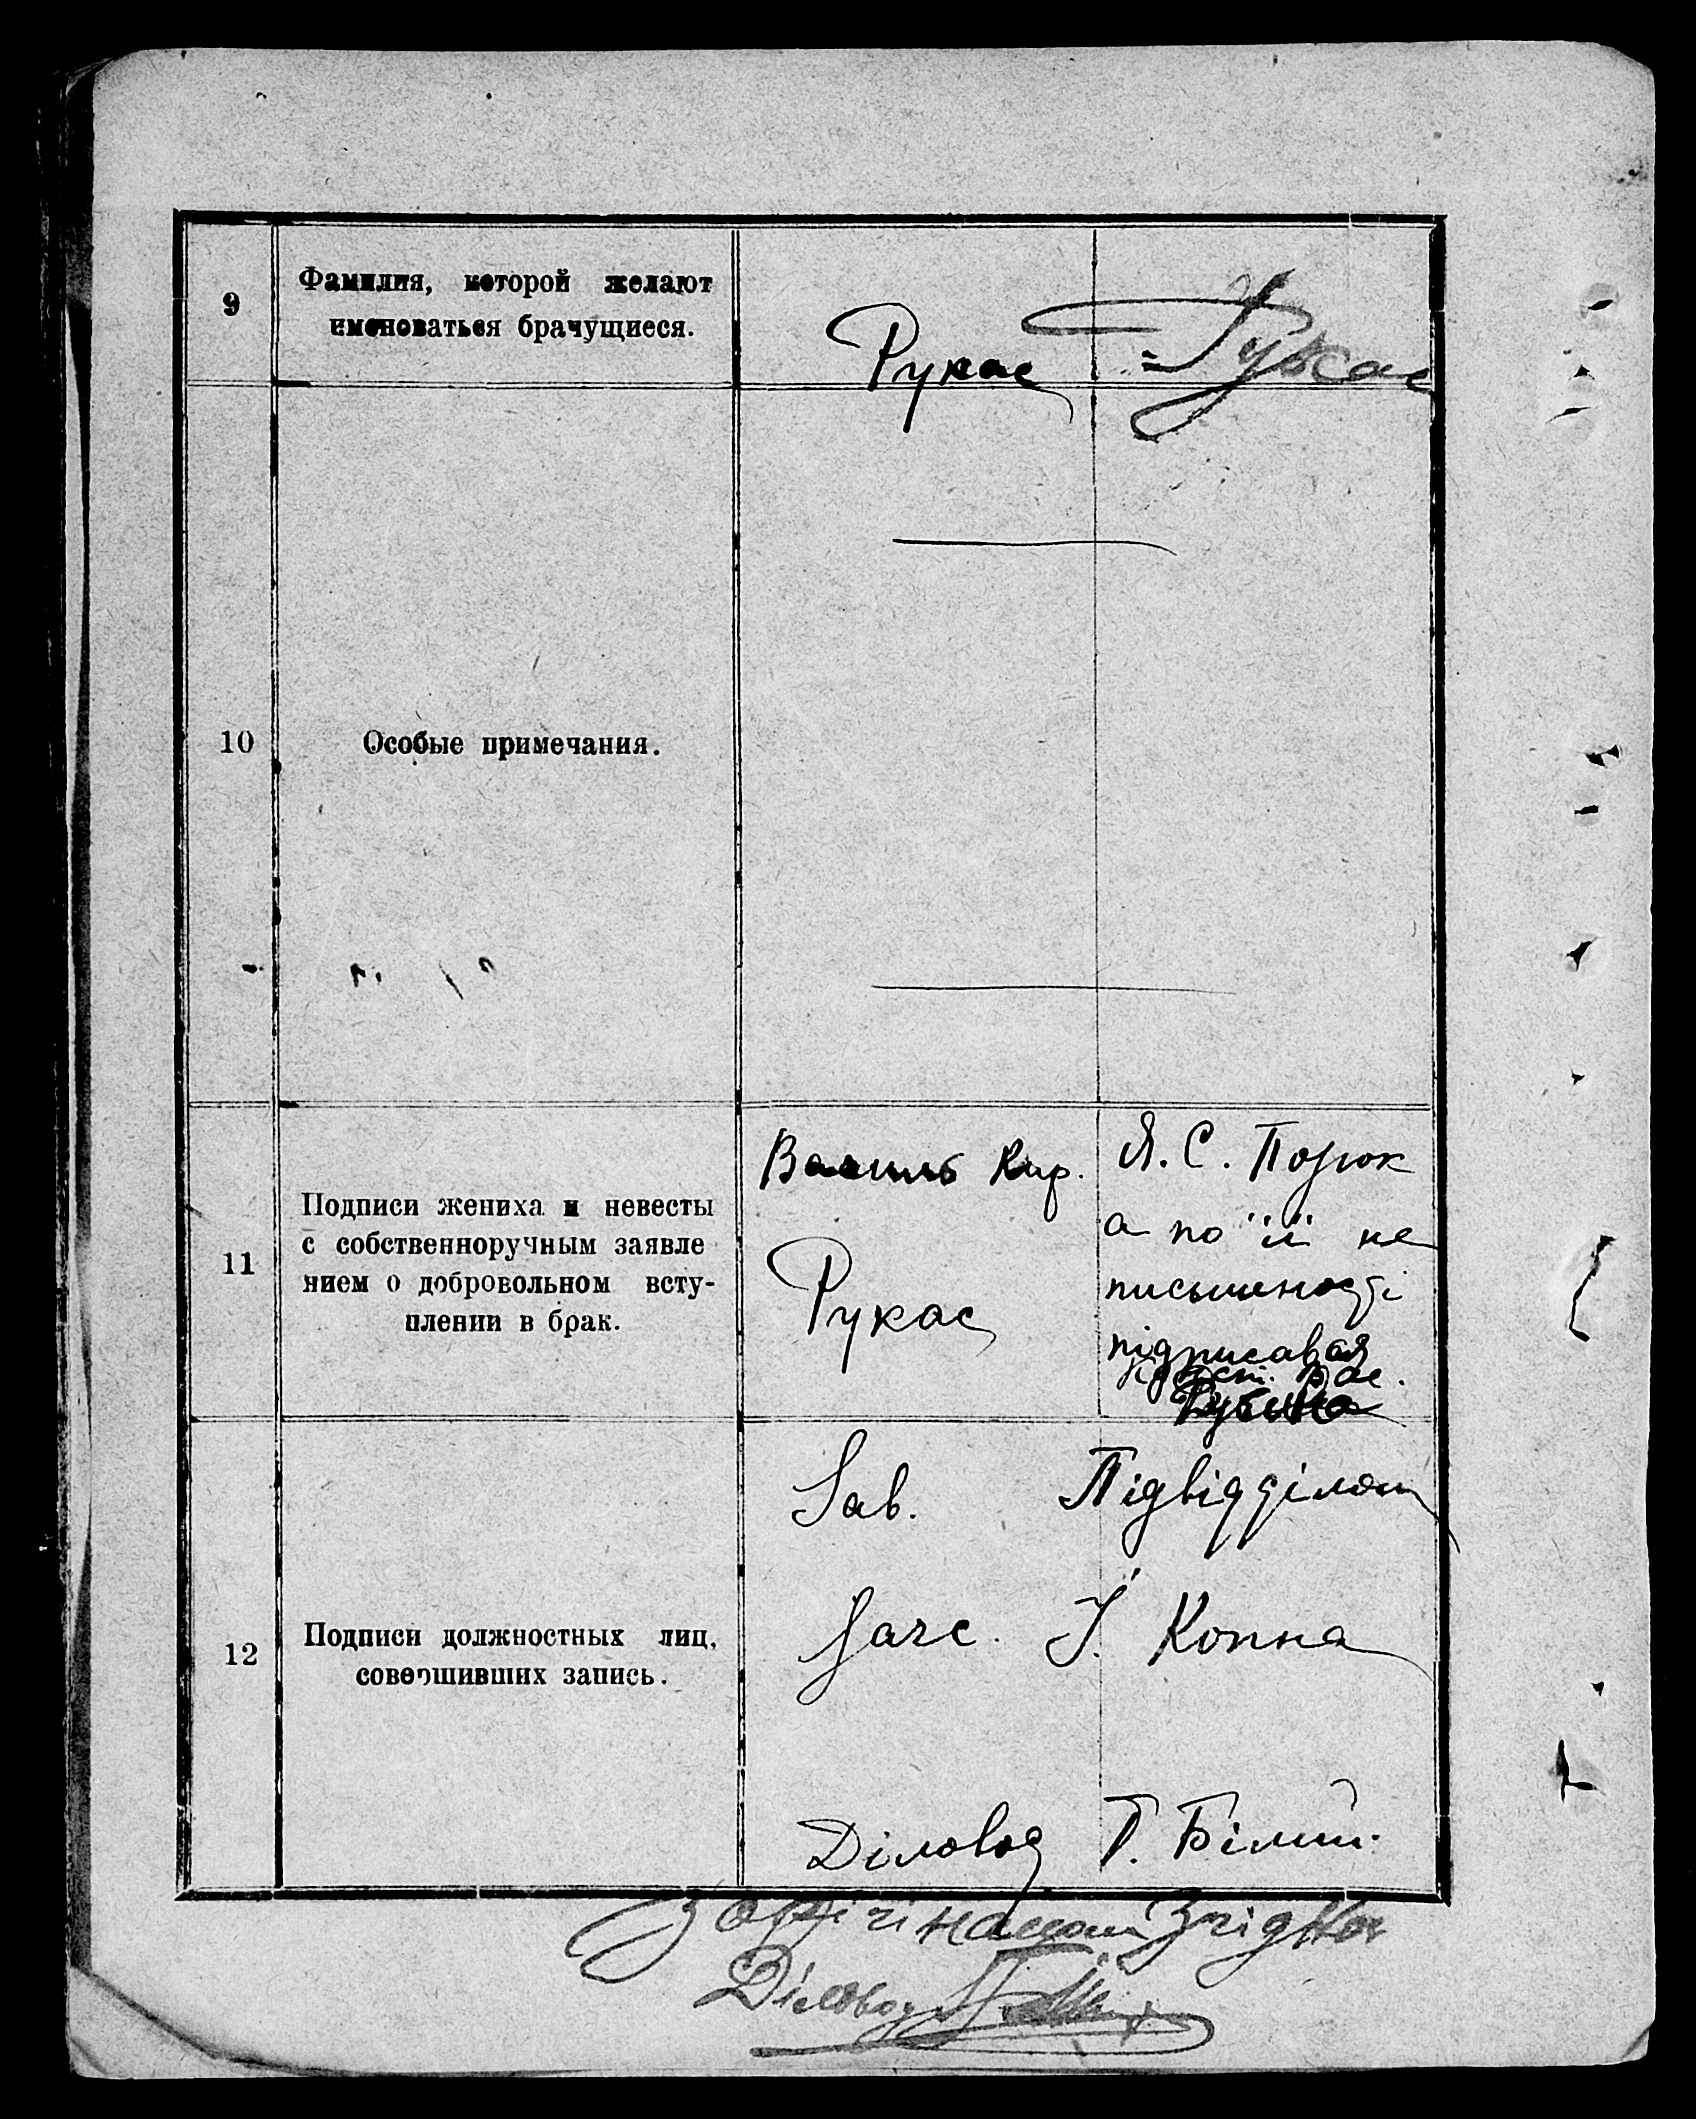 9
Фамилия, которой желают
именоваться брачущиеся.
Рукас = Рукас
10
Особые примечания.
11
Подписи жениха и невесты
с собственноручным заявле
нием о добровольном всту-
плении в брак.
Василь Кир.
Рукас
Я. С. Порюк
а по її не
письменості
підписався
Рубена
12
Подписи должностных лиц,
совершивших запись.
Зав. Підвідділом
Загс. І. Копна
Діловод Г. Білий.
З оригіналом Згідно
Діловод